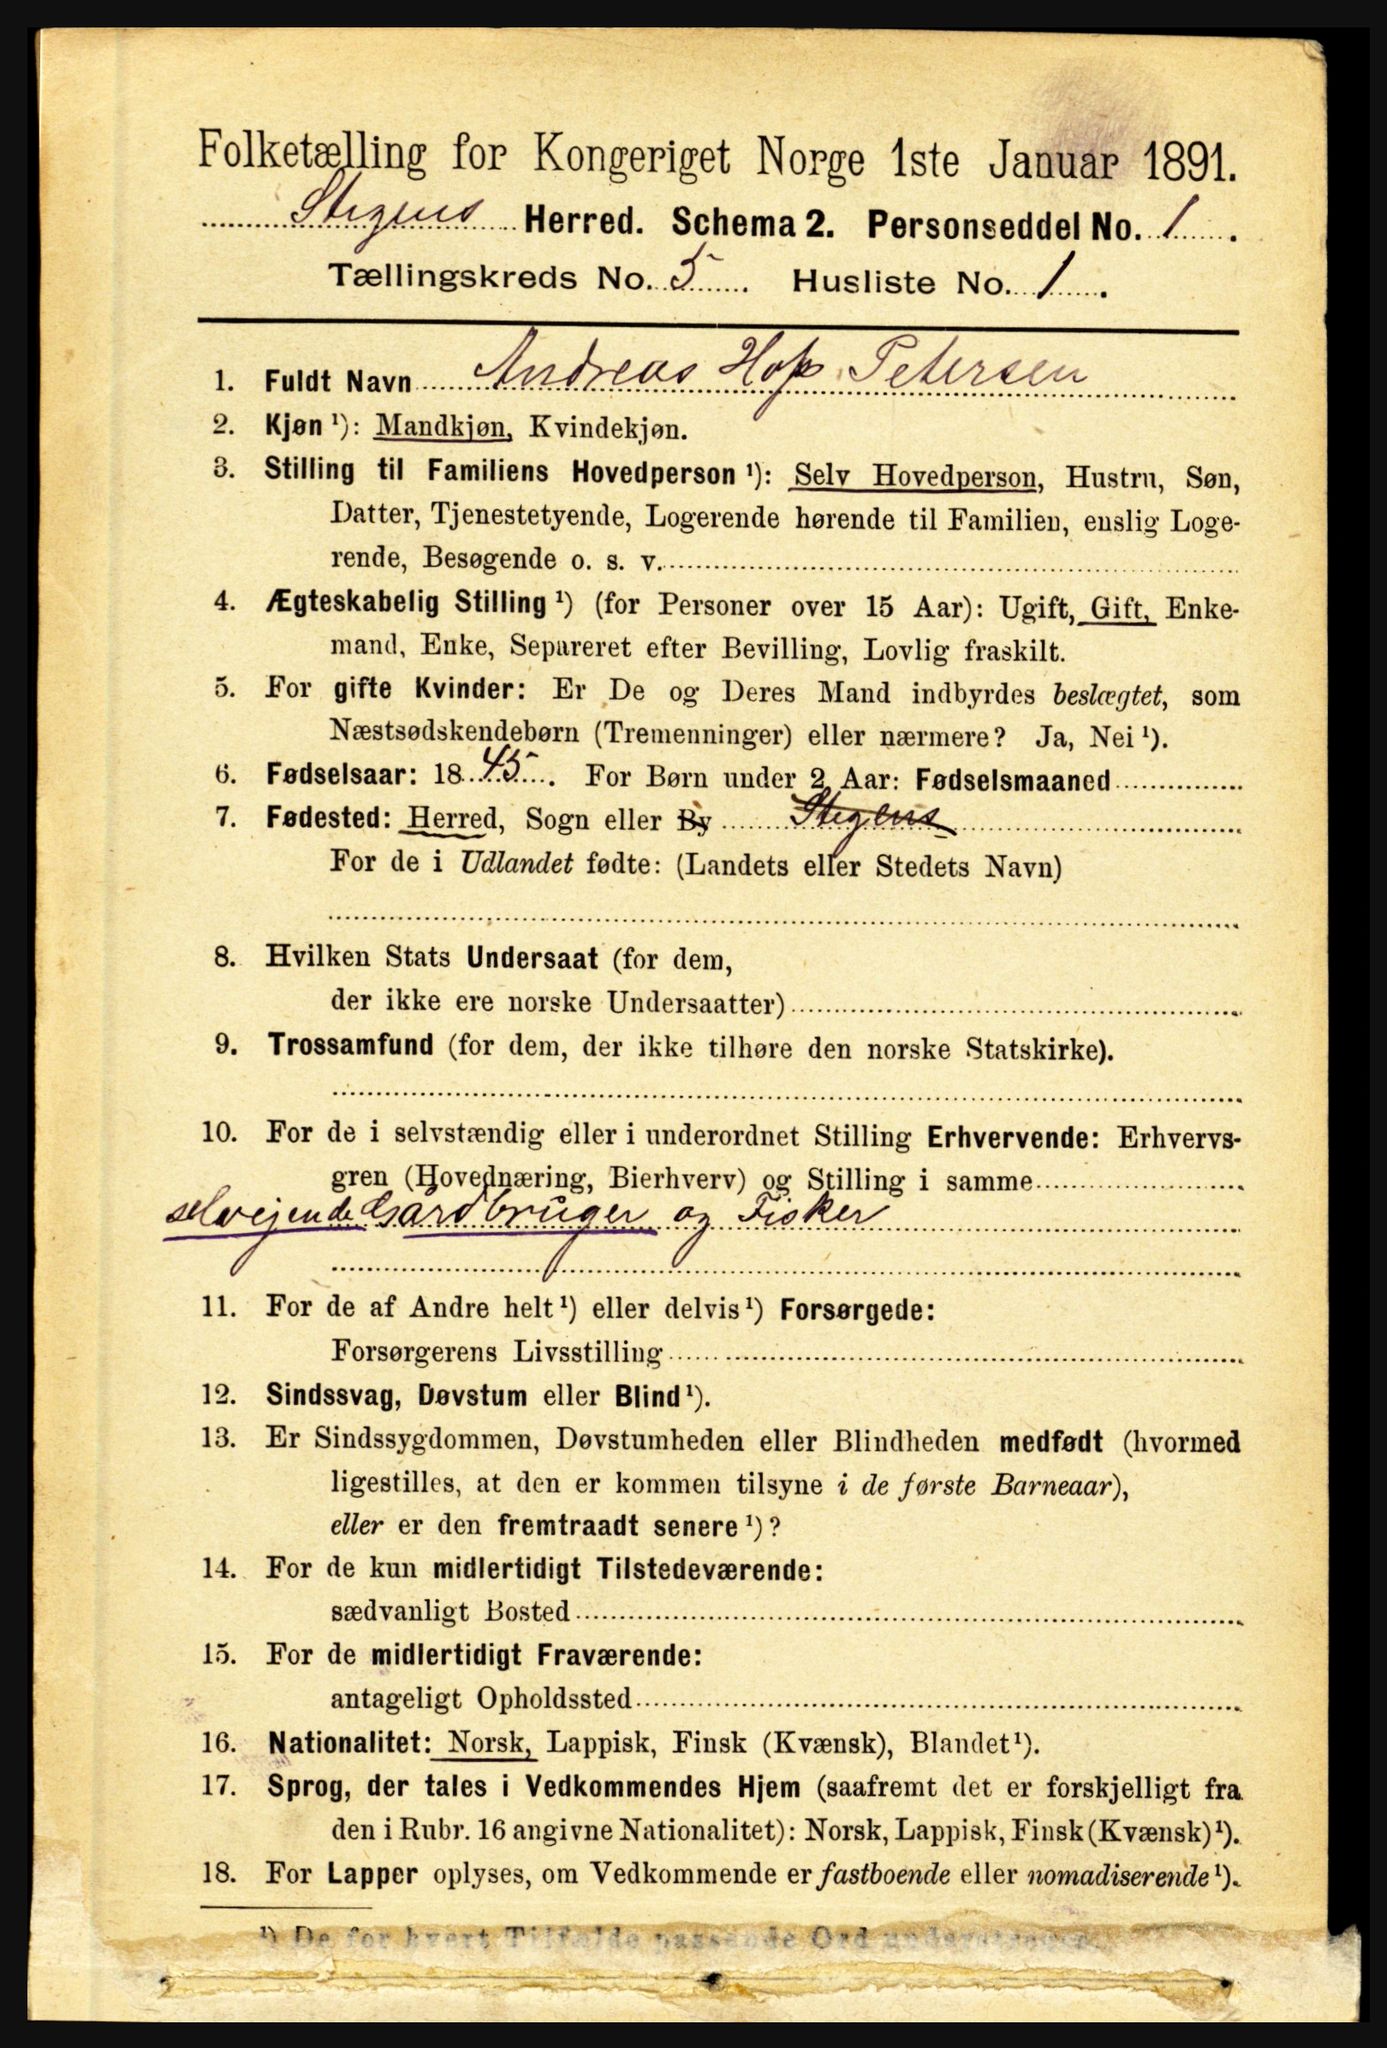 Folketælling for Kongeriget Norge 1ste Januar 1891.
Stegens Herred. Schema 2. Personseddel No. 1.
Tællingskreds No. 5. Husliste No. 1.
1. Fuldt Navn Andreas Hop Petersen
2. Kjøn ¹): Mandkjøn, Kvindekjøn.
3. Stilling til Familiens Hovedperson ¹): Selv Hovedperson, Hustru, Søn,
Datter, Tjenestetyende, Logerende hørende til Familien, enslig Loge-
rende, Besøgende o. s. v.
4. Ægteskabelig Stilling ¹) (for Personer over 15 Aar): Ugift, Gift, Enke-
mand, Enke, Separeret efter Bevilling, Lovlig fraskilt.
5. For gifte Kvinder: Er De og Deres Mand indbyrdes beslægtet, som
Næstsødskendebørn (Tremenninger) eller nærmere? Ja, Nei ¹).
6. Fødselsaar: 1845. For Børn under 2 Aar: Fødselsmaaned
7. Fødested: Herred, Sogn eller By Stegens
For de i Udlandet fødte: (Landets eller Stedets Navn)
8. Hvilken Stats Undersaat (for dem,
der ikke ere norske Undersaatter)
9. Trossamfund (for dem, der ikke tilhøre den norske Statskirke).
10. For de i selvstændig eller i underordnet Stilling Erhvervende: Erhvervs-
gren (Hovednæring, Bierhverv) og Stilling i samme
selveiende Gårdbruger og Fisker
11. For de af Andre helt ¹) eller delvis ¹) Forsørgede:
Forsørgerens Livsstilling
12. Sindssvag, Døvstum eller Blind ¹).
13. Er Sindssygdommen, Døvstumheden eller Blindheden medfødt (hvormed
ligestilles, at den er kommen tilsyne i de første Barneaar),
eller er den fremtraadt senere ¹)?
14. For de kun midlertidigt Tilstedeværende:
sædvanligt Bosted
15. For de midlertidigt Fraværende:
antageligt Opholdssted
16. Nationalitet: Norsk, Lappisk, Finsk (Kvænsk), Blandet ¹).
17. Sprog, der tales i Vedkommendes Hjem (saafremt det er forskjelligt fra
den i Rubr. 16 angivne Nationalitet): Norsk, Lappisk, Finsk (Kvænsk) ¹).
18. For Lapper oplyses, om Vedkommende er fastboende eller nomadiserende ¹).
¹) De for hvert Tilfælde passende Ord understreges.